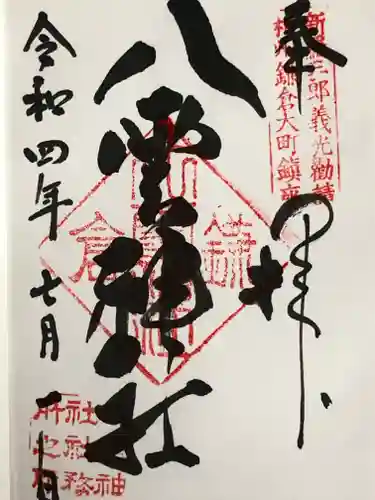 奉拝
新羅三郎義光勧請
相州鎌倉大町鎮座
八雲神社
鎌倉
令和四年七月
日
神
社社務
所之印